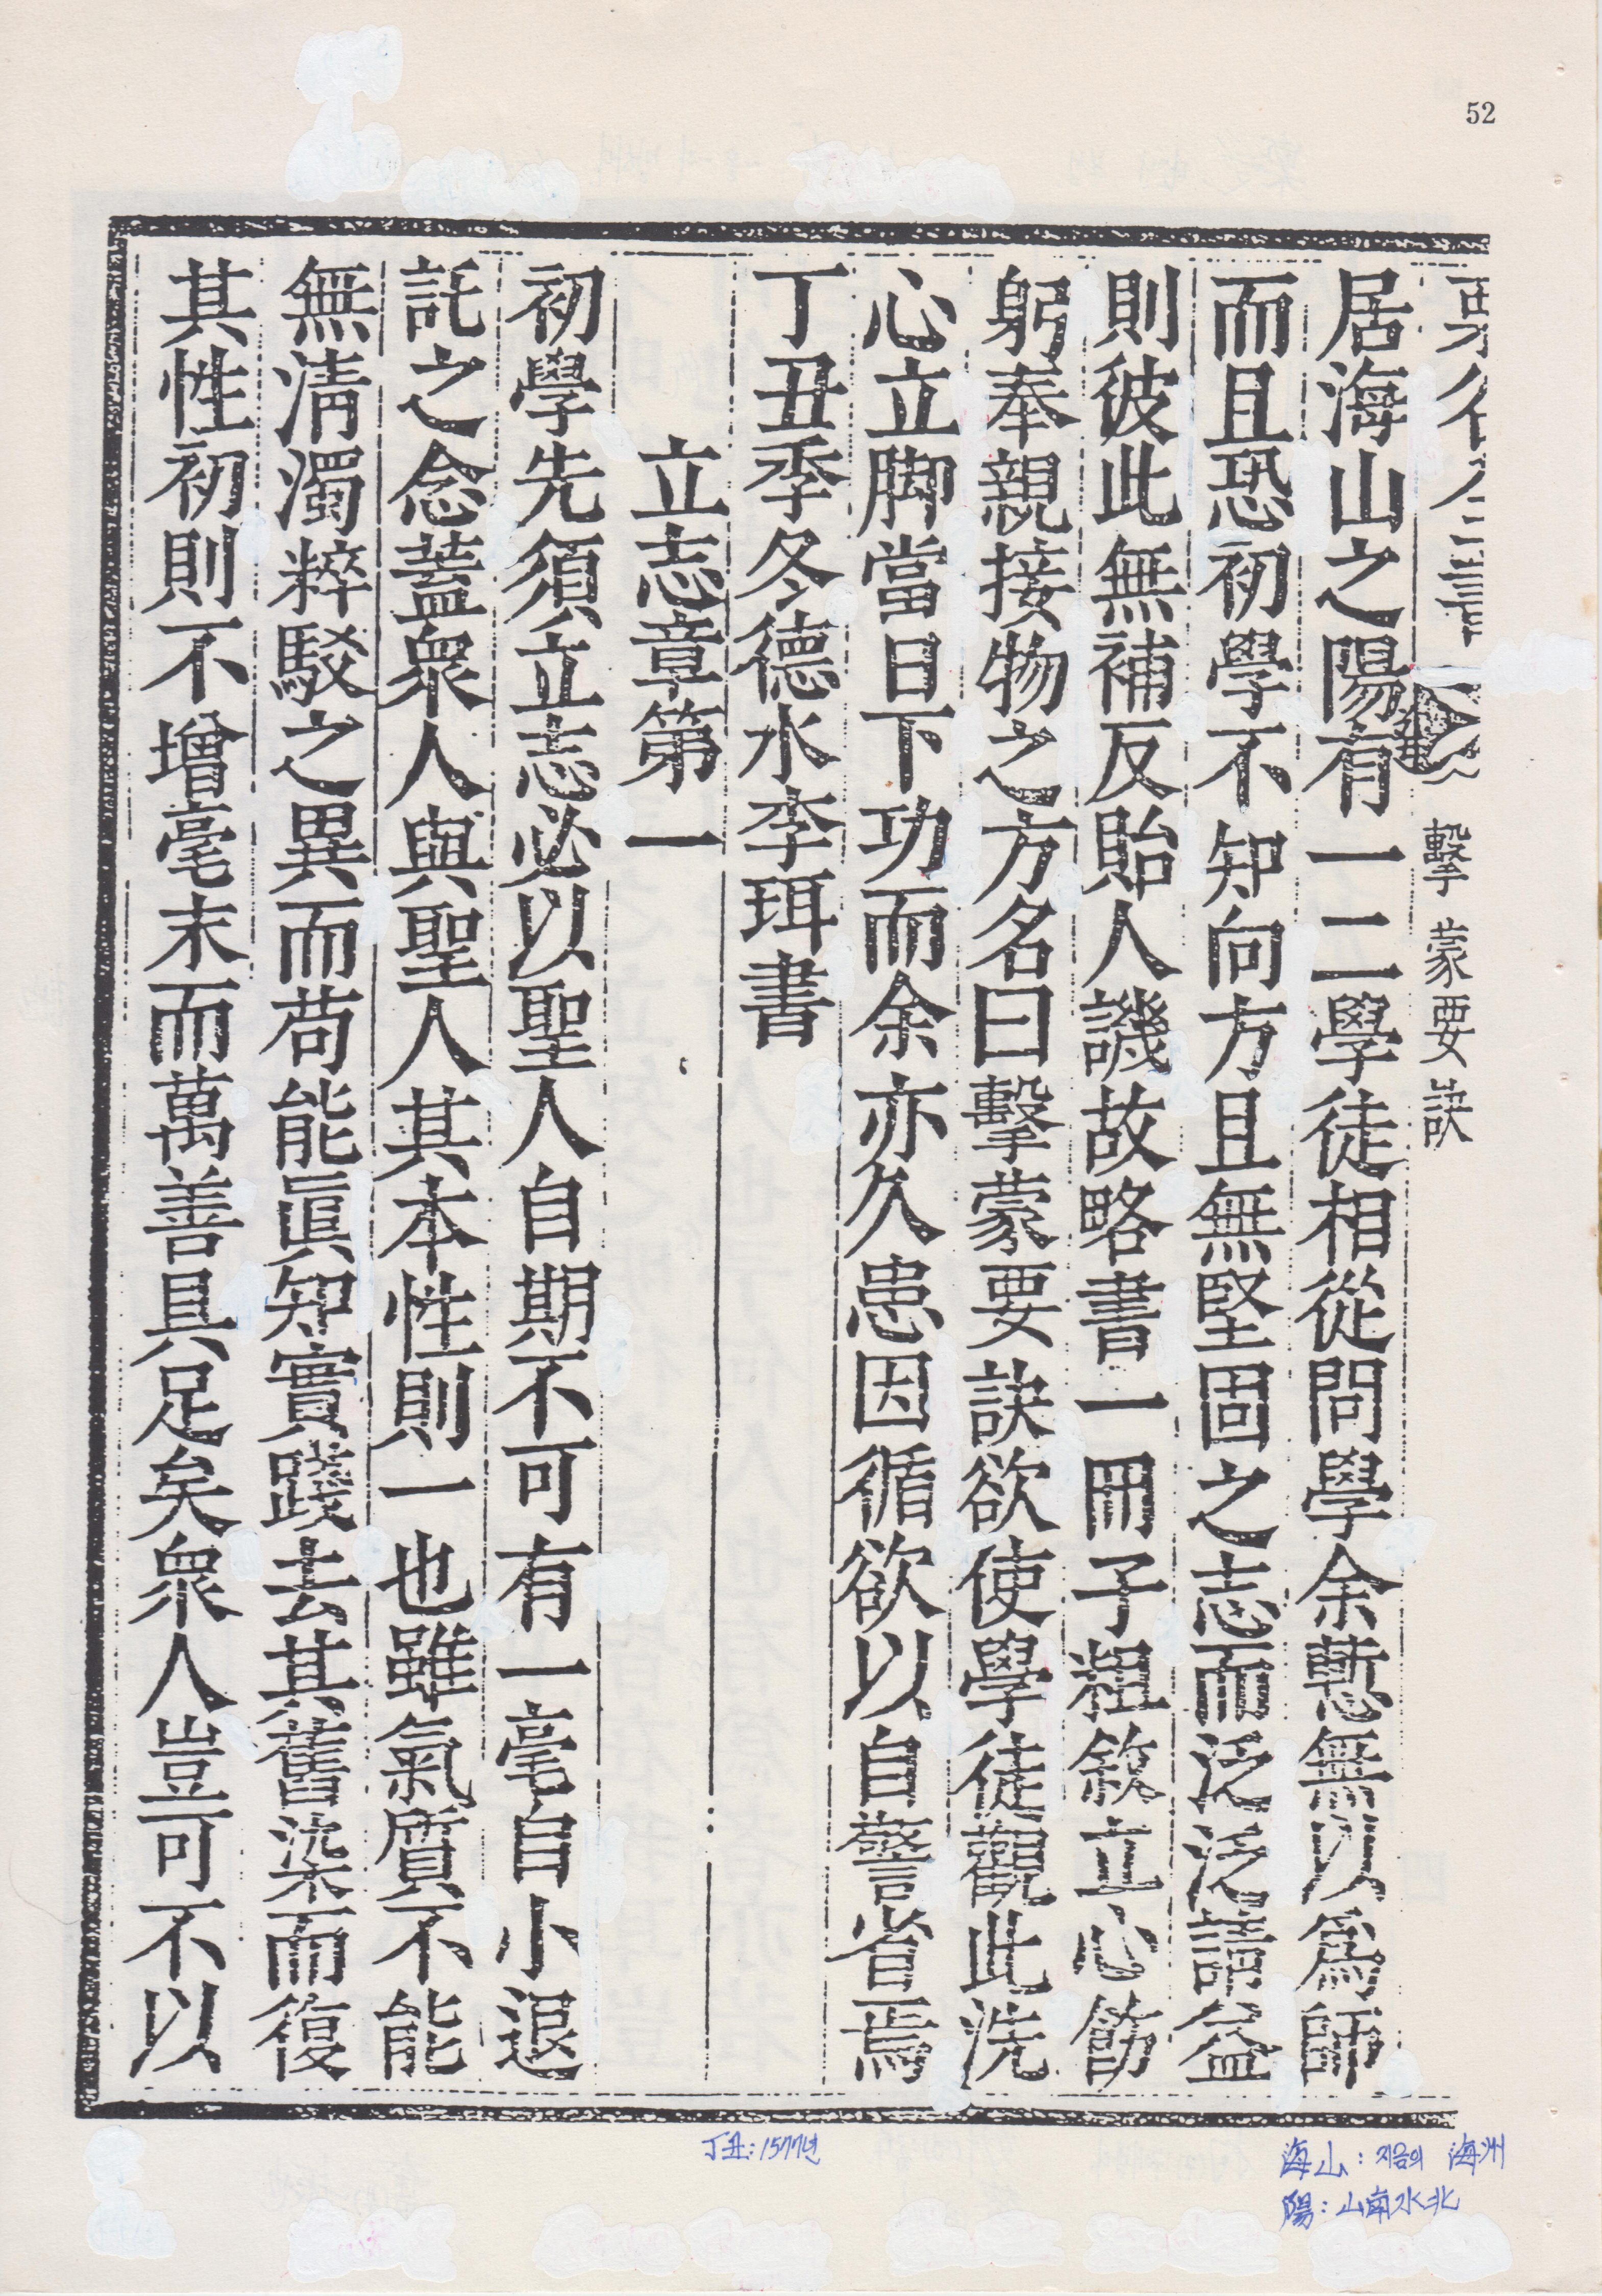 52
擊蒙要訣
居海山之陽有一二學徒相從問學余慙無以爲師
而且恐初學不知向方且無堅固之志而泛泛請益
則彼此無補反貽人譏故略書一冊子粗敘立心飭
躬奉親接物之方名曰擊蒙要訣欲使學徒觀此洗
心立脚當日下功而余亦久患因循欲以自警省焉
丁丑季冬德水李珥書
立志章第一
初學先須立志必以聖人自期不可有一毫自小退
託之念蓋衆人與聖人其本性則一也雖氣質不能
無淸濁粹駁之異而苟能眞知實踐去其舊染而復
其性初則不增毫末而萬善具足矣衆人豈可不以
丁丑:1577년
海山: 지금의 海州
陽: 山南水北